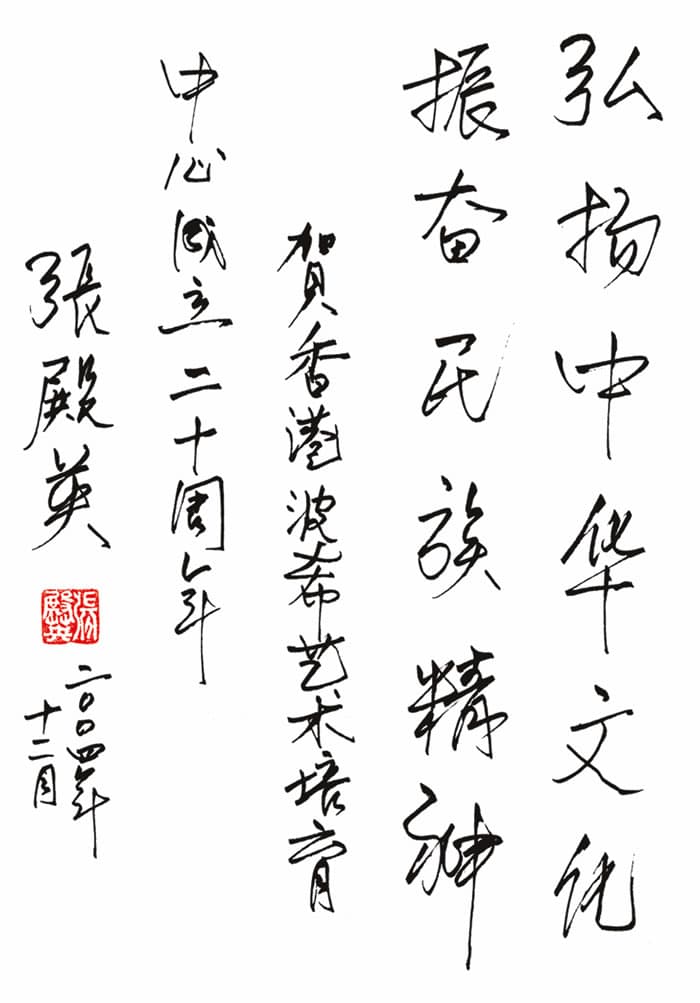 弘扬中华文化
振奋民族精神
賀香港波希艺术培育
中心成立二十周年
張殿英
二〇〇四年
十二月